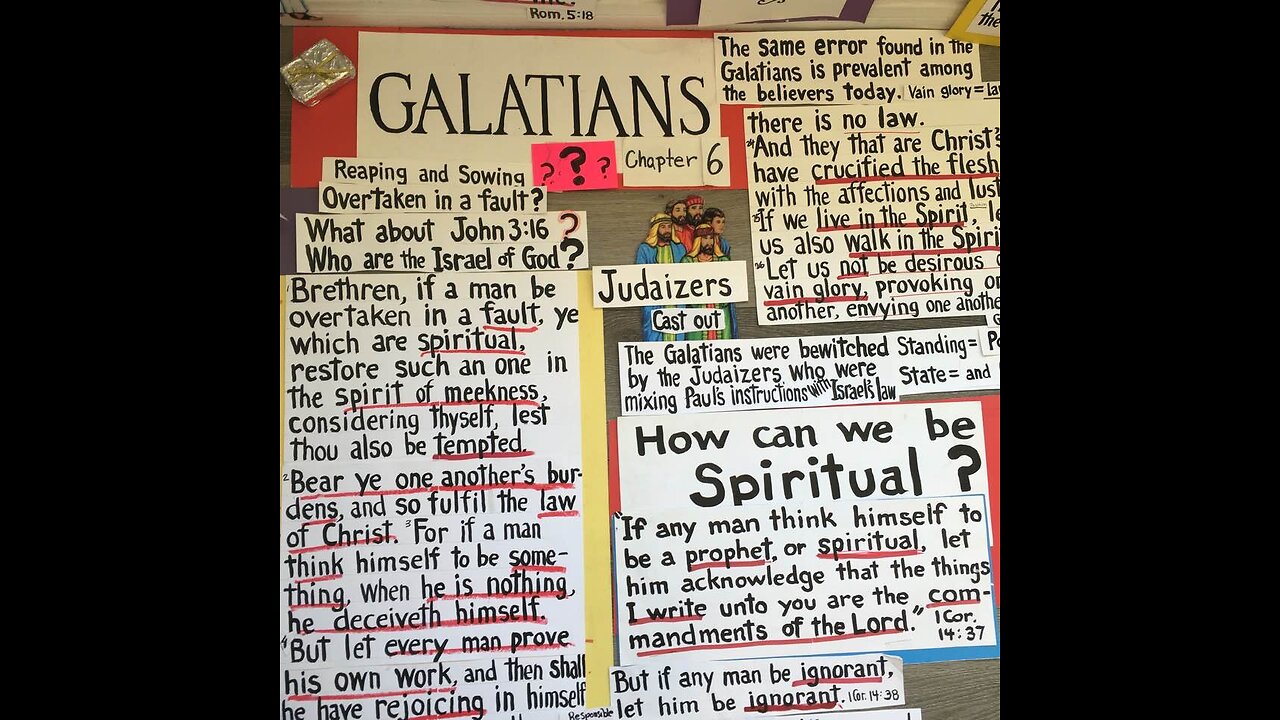 Rom. 5:18
GALATIANS
Chapter 6
? ? ?
Reaping and Sowing
Overtaken in a fault?
What about John 3:16 ?
Who are the Israel of God?
¹Brethren, if a man be
overtaken in a fault, ye
which are spiritual,
restore such an one in
the spirit of meekness,
considering thyself, lest
thou also be tempted.
²Bear ye one another's bur-
dens, and so fulfil the law
of Christ. ³For if a man
think himself to be some-
thing, when he is nothing,
he deceiveth himself.
⁴But let every man prove
his own work, and then shall
he have rejoicing in himself
The same error found in the
Galatians is prevalent among
the believers today. Vain glory =
there is no law.
²⁴And they that are Christ's
have crucified the flesh
with the affections and lust
²⁵If we live in the Spirit,
us also walk in the Spiri
²⁶Let us not be desirous
vain glory, provoking
another, envying one anothe
Judaizers
Cast out
The Galatians were bewitched
by the Judaizers who were
mixing Paul's instructions with Israel's law
Standing=
State= and
How can we be
Spiritual ?
"If any man think himself to
be a prophet, or spiritual, let
him acknowledge that the things
I write unto you are the com-
mandments of the Lord." 1 Cor.
14:37
But if any man be ignorant,
let him be ignorant. 1 Cor. 14:38
Responsible